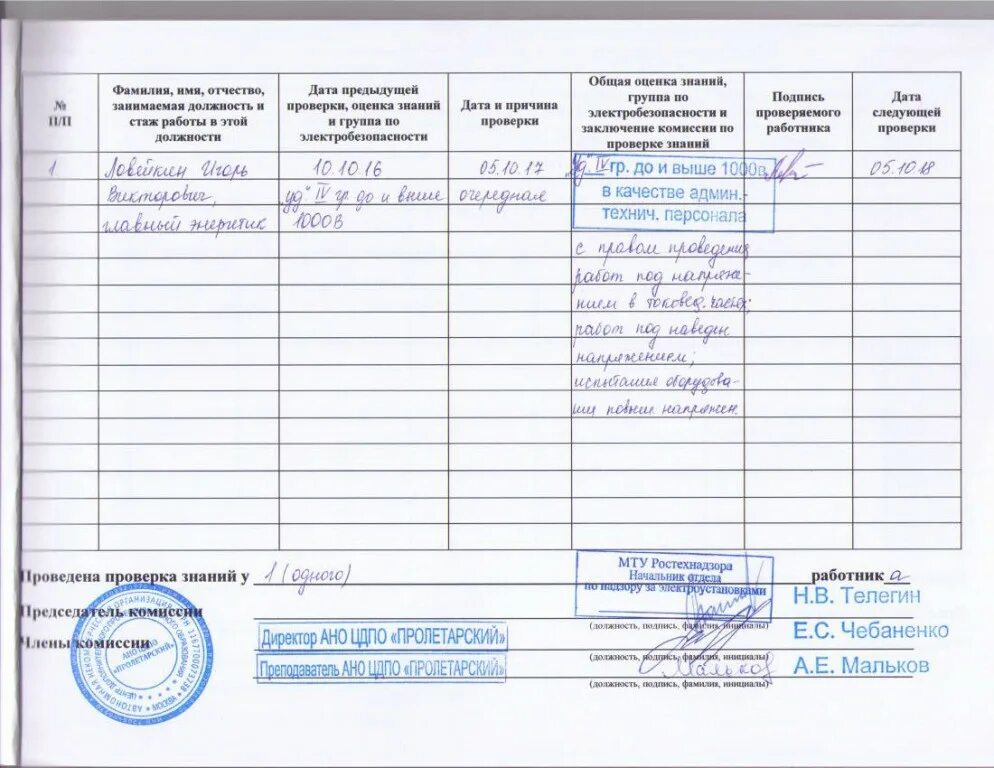 №
П/П
Фамилия, имя, отчество,
занимаемая должность и
стаж работы в этой
должности
Дата предыдущей
проверки, оценка знаний
и группа по
электробезопасности
Дата и причина
проверки
Общая оценка знаний,
группа по
электробезопасности и
заключение комиссии по
проверке знаний
Подпись
проверяемого
работника
Дата
следующей
проверки
1
Ловейкин Игорь
Викторович,
главный энергетик
10.10.16
"уд" IV гр. до и выше
1000В
05.10.17
очередная
"уд" IV гр. до и выше 1000в
в качестве админ.-
технич. персонала
с правом проведения
работ под напряже-
нием в токовед. частях;
работ под наведен
напряжением;
испытания оборудова-
ния повыш напряжен.
05.10.18
Проведена проверка знаний у 1 (одного) работник а
МТУ Ростехнадзора
Начальник отдела
по надзору за электроустановками
Председатель комиссии
Н.В. Телегин
(должность, подпись, фамилия, инициалы)
Члены комиссии
Директор АНО ЦДПО «ПРОЛЕТАРСКИЙ»
Е.С. Чебаненко
(должность, подпись, фамилия, инициалы)
Преподаватель АНО ЦДПО «ПРОЛЕТАРСКИЙ»
Мальков
А.Е. Мальков
(должность, подпись, фамилия, инициалы)
АНО ЦДПО
«ПРОЛЕТАРСКИЙ»
МОСКВА